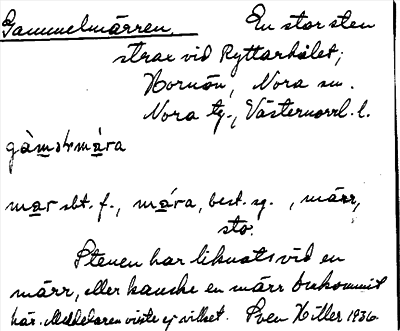 Gammelmärren. En stor sten
strax vid Ryttarhålet,
Hornön, Nora sn.
Nora tg., Västernorrl. l.
mar sbt. f., mára, best. sg., märr,
sto.
Stenen har liknats vid en
märr, eller kanske en märr omkommit
här. Meddelaren visste ej vilket. Sven Hiller 1936